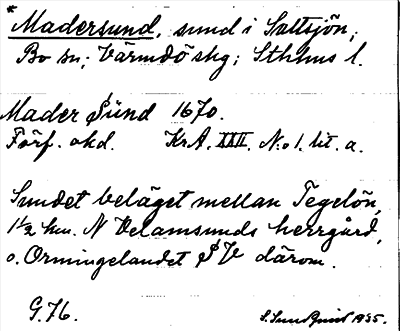 * Madersund, sund i Saltsjön,
Bo sn; Värmdö skg; Sthlms l.
Mader Sünd 1670.
Förf. okd. KrA. XXII. No 1. lit. a.
Sundet beläget mellan Tegelön,
1½ km. N Velamsunds herrgård,
o. Ormingelandet SV därom.
G. 76.
S. Sundquist 1935.